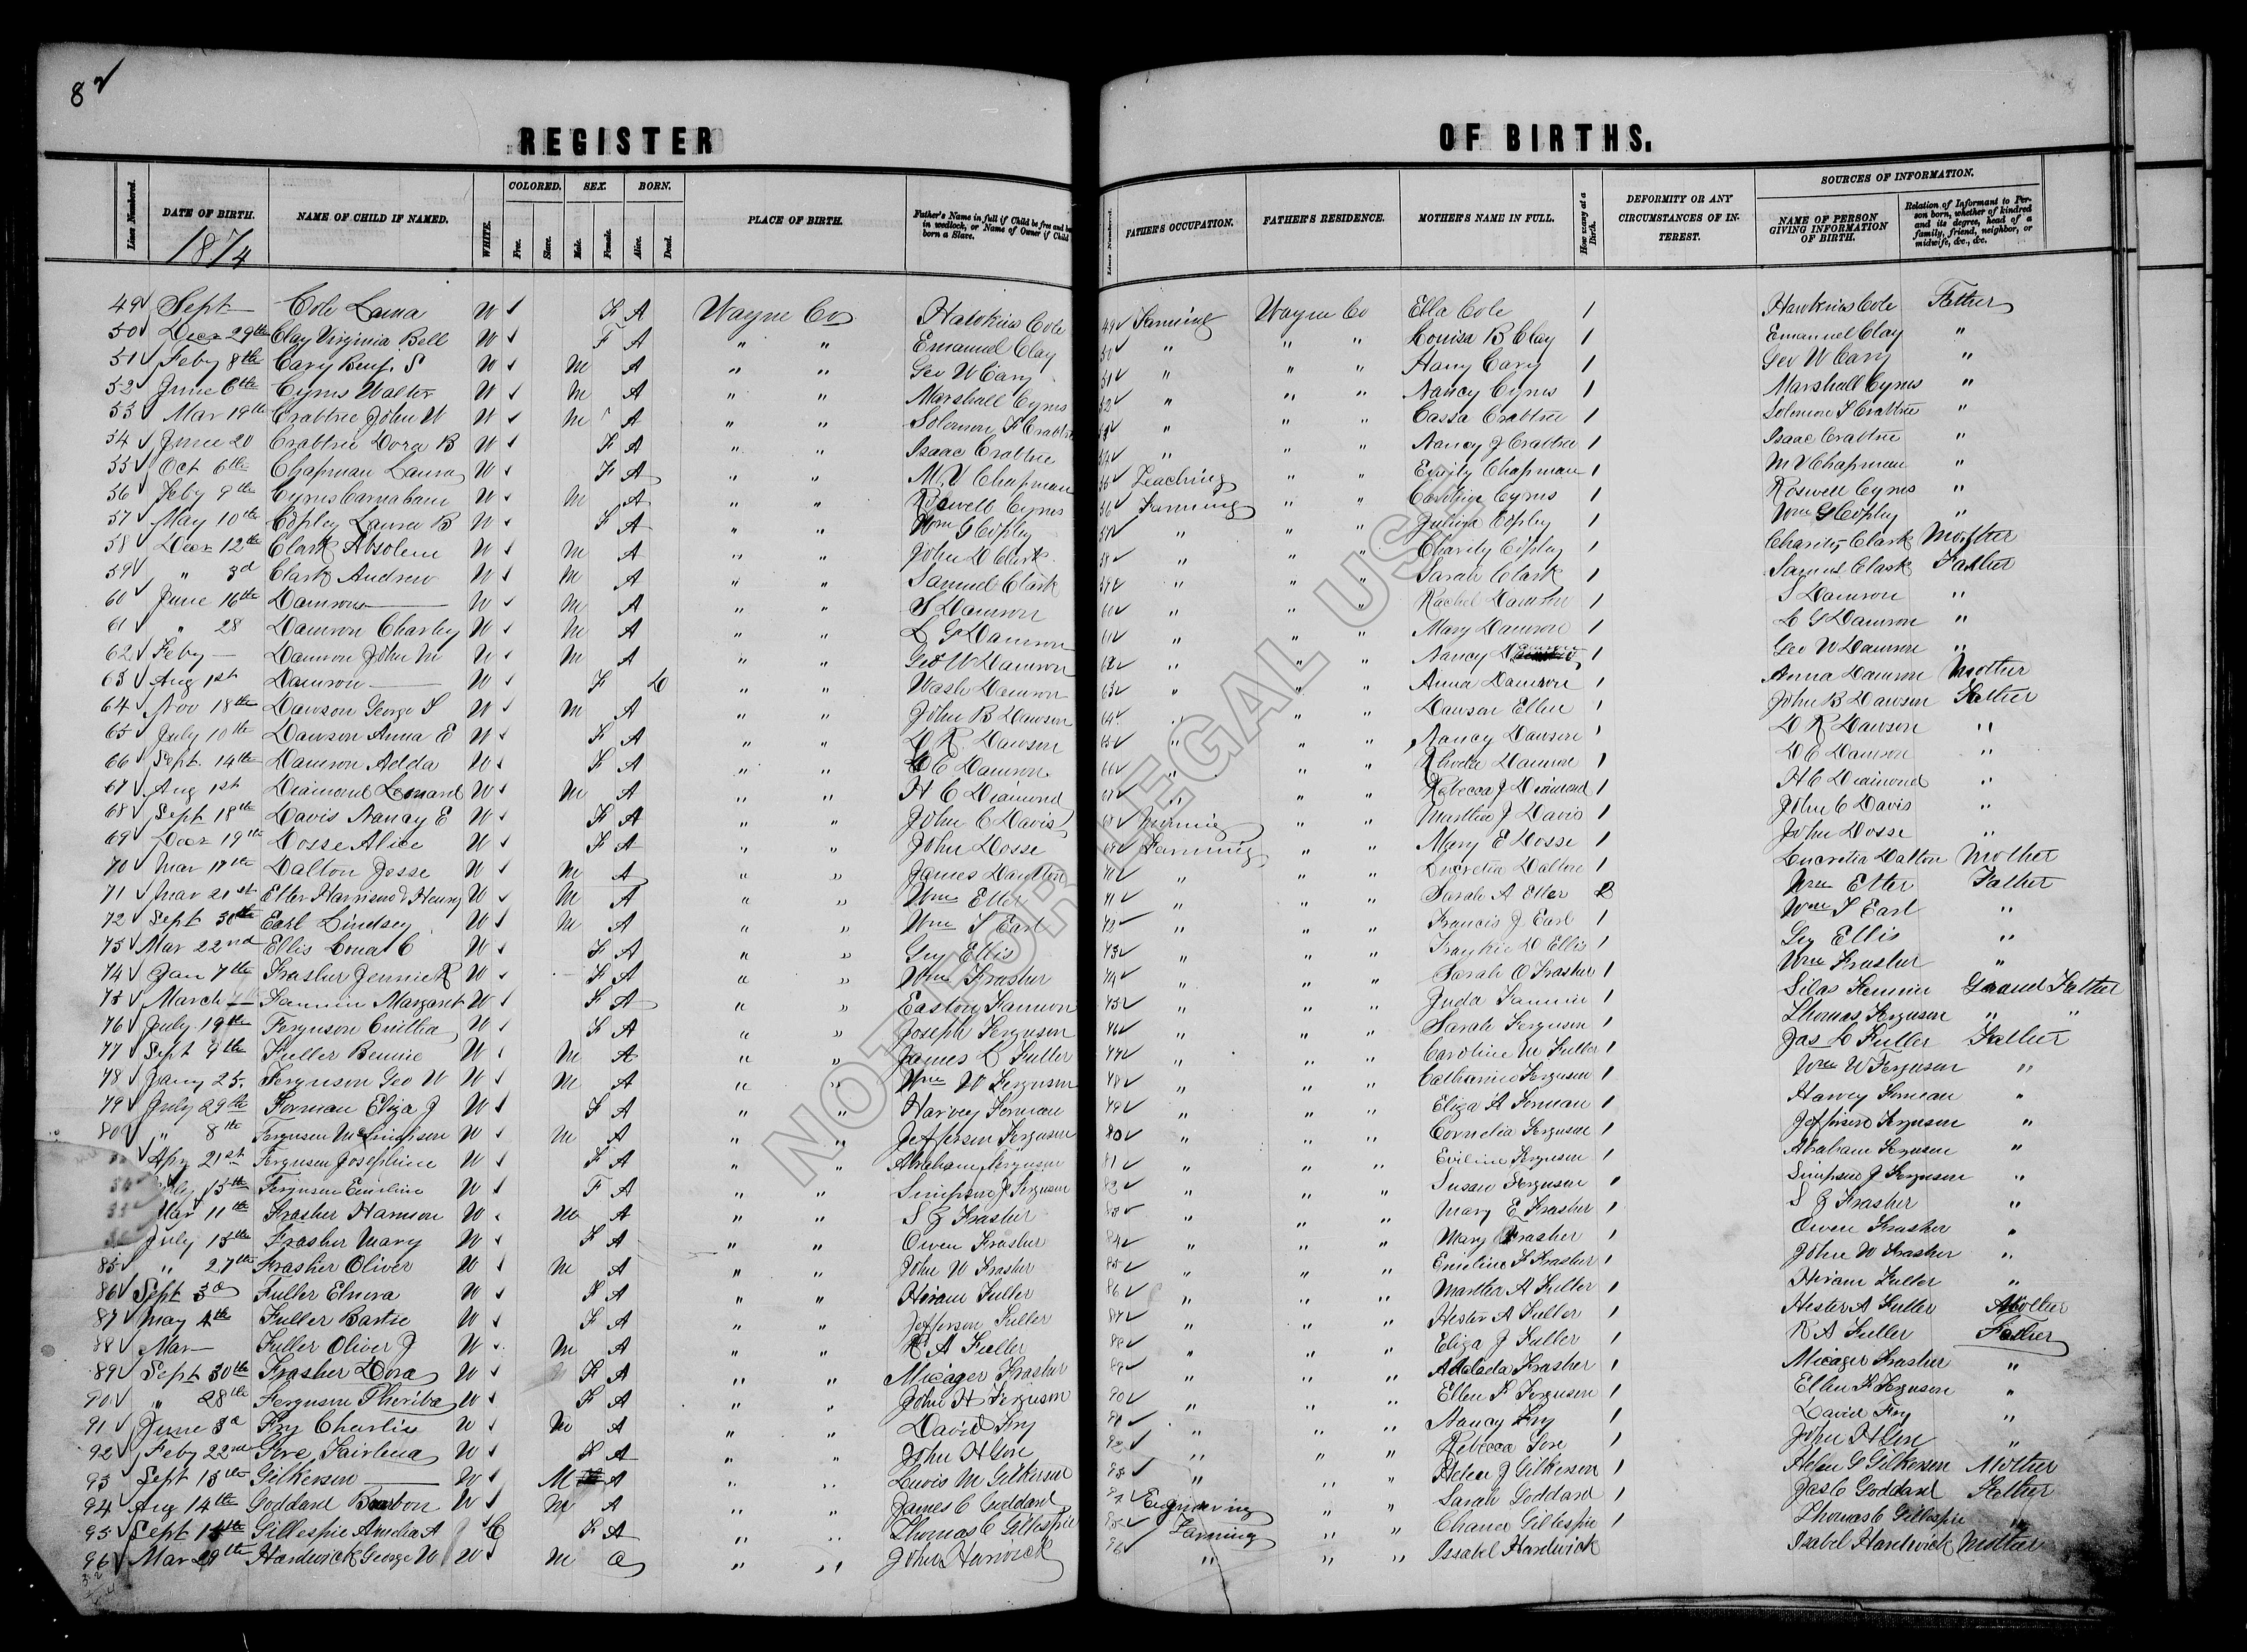 8
REGISTER OF BIRTHS.
Lines Numbered. DATE OF BIRTH. 1874 NAME OF CHILD IF NAMED. WHITE. COLORED. Free. Slave. SEX. Male. Female. BORN. Alive. Dead. PLACE OF BIRTH. Father's Name in full if Child be free and born in wedlock, or Name of Owner if Child born a Slave. Lines Numbered. FATHER'S OCCUPATION. FATHER'S RESIDENCE. MOTHER'S NAME IN FULL. How many at a Birth. DEFORMITY OR ANY CIRCUMSTANCES OF INTEREST. SOURCES OF INFORMATION. NAME OF PERSON GIVING INFORMATION OF BIRTH. Relation of Informant to Person born, whether of kindred and its degree, head of a family, friend, neighbor, or midwife, &c., &c.
49 Sept Cole W F A Wayne Co Hawkins Cole 49 Farming Wayne Co Ella Cole 1 Hawkins Cole Father
50 Decr 29th Clay Virginia Bell W F A " " Emanuel Clay 50 " " " Louisa B Clay 1 Emanuel Clay "
51 Feby 8th Cary Benj. S W M A " " Geo W Cary 51 " " " Cary 1 Geo W Cary "
52 June 6th Cyrus Walter W M A " " Marshall Cyrus 52 " " " Nancy Cyrus 1 Marshall Cyrus "
53 Mar 19th Crabtree John W W M A " " Solomon F Crabtree 53 " " " Cassa Crabtree 1 Solomon F Crabtree "
54 June 20 Crabtree Dora B W F A " " Isaac Crabtree 54 " " " Nancy J Crabtree 1 Isaac Crabtree "
55 Oct 6th Chapman Laura W F A " " M. V Chapman 55 Teaching " " Emily Chapman 1 M V Chapman "
56 Feby 9th Cyrus W M A " " Roswell Cyrus 56 Farming " " Caroline Cyrus 1 Roswell Cyrus "
57 May 10th Copley Laura B W F A " " Wm G Copley 57 " " " Copley 1 Wm G Copley "
58 Decr 12th Clark Absolem W M A " " John D Clark 58 " " " Charity Copley 1 Charity Clark Mother
59 " 3d Clark Andrew W M A " " Samuel Clark 59 " " " Sarah Clark 1 Samuel Clark Father
60 June 16th Damron W M A " " S Damron 60 " " " Rachel Damron 1 S Damron "
61 " 28 Damron Charley W M A " " L G Damron 61 " " " Mary Damron 1 L G Damron "
62 Feby Damron John M W M A " " Geo W Damron 62 " " " Nancy 1 Geo W Damron "
63 Aug 1st Damron W F D " " Wash Damron 63 " " " Anna Damron 1 Anna Damron Mother
64 Nov 18th Dawson George S W M A " " John B Dawson 64 " " " Dawson Ellen 1 John B Dawson Father
65 July 10th Dawson Anna E W F A " " D R Dawson 65 " " " Nancy Dawson 1 D R Dawson "
66 Sept 14th Damron Adda W F A " " D C Damron 66 " " " Rhoda Damron 1 D C Damron "
67 Aug 1st Diamond Leonard W M A " " H C Diamond 67 " " " Rebecca J Diamond 1 H C Diamond "
68 Sept 18th Davis Nancy E W F A " " John C Davis 68 " " Martha J Davis 1 John C Davis "
69 Decr 19th Dosse Alice W F A " " John Dosse 69 Farming " " Mary E Dosse 1 John Dosse "
70 Mar 17th Dalton Jesse W M A " " James Daulton 70 " " " Lucretia Dalton 1 Lucretia Dalton Mother
71 Mar 21st Etter Harrison & Henry W M A " " Wm Etter 71 " " " Sarah A Etter 2 Wm Etter Father
72 Sept 30th Earl Lindsey W M A " " Wm S Earl 72 " " " Francis J Earl 1 Wm S Earl "
73 Mar 22nd Ellis C W F A " " Guy Ellis 73 " " " Frankie D Ellis 1 Guy Ellis "
74 Jan 7th Frasher Jennie R W F A " " Wm Frasher 74 " " " Sarah O Frasher 1 Wm Frasher "
75 March Fannin Margaret W F A " " Easton Fannin 75 " " " Juda Fannin 1 Silas Fannin Grand Father
76 July 19th Ferguson W F A " " Joseph Ferguson 76 " " " Sarah Ferguson 1 Thomas Ferguson " "
77 Sept 9th Fuller Bennie W M A " " James L Fuller 77 " " " Caroline M Fuller 1 Jas L Fuller Father
78 Jany 25. Ferguson Geo W W M A " " Wm W Ferguson 78 " " " Catharine Ferguson 1 Wm W Ferguson "
79 July 29th Forman Eliza J W F A " " Harvey Forman 79 " " " Eliza A Forman 1 Harvey Forman "
80 " 8th Ferguson W M A " " Jefferson Ferguson 80 " " " Cornelia Ferguson 1 Jefferson Ferguson "
Apr 21st Ferguson Josephine W F A " " Abraham Ferguson 81 " " " Eveline Ferguson 1 Abraham Ferguson "
15th Ferguson Emeline W F A " " Simpson J Ferguson 82 " " " Susan Ferguson 1 Simpson J Ferguson "
Mar 11th Frasher Harrison W M A " " S G Frasher 83 " " " Mary E Frasher 1 S G Frasher "
July 15th Frasher Mary W F A " " Owen Frasher 84 " " " Mary Frasher 1 Owen Frasher "
85 " 27th Frasher Oliver W M A " " John W Frasher 85 " " " Emeline F Frasher 1 John W Frasher "
86 Sept 3d Fuller Elnora W F A " " Hiram Fuller 86 " " " Martha A Fuller 1 Hiram Fuller "
87 May 4th Fuller Bartie W F A " " Jefferson Fuller 87 " " " Hester A Fuller 1 Hester A Fuller Mother
88 Mar Fuller Oliver J W M A " " R A Fuller 88 " " " Eliza J Fuller 1 R A Fuller Father
89 Sept 30th Frasher Dora W F A " " Micager Frasher 89 " " " Adalada Frasher 1 Micager Frasher "
90 " 28th Ferguson Theriba W F A " " John H Ferguson 90 " " " Ellen F Ferguson 1 Ellen F Ferguson "
91 June 3d Fry Charlie W M A " " David Fry 91 " " " Nancy Fry 1 David Fry "
92 Feby 22nd Gore Fairlena W F A " " John H Gore 92 " " " Rebecca Gore 1 John H Gore "
93 Sept 15th Gilkerson W M A " " Lewis M Gilkerson 93 " " " Helen J Gilkerson 1 Helen G Gilkerson Mother
94 Aug 14th Goddard Bourbon W M A " " James C Goddard 94 " " Sarah Goddard 1 Jas C Goddard Father
95 Sept 15th Gillespie Amelia A C F A " " Thomas C Gillespie 95 Farming " " Chanea Gillespie 1 Thomas C Gillespie "
96 Mar 29th Hardwick George W W M a " " John Harwick 96 " " " Issabel Hardwick Isabel Hardwick Mother
NOT FOR LEGAL USE